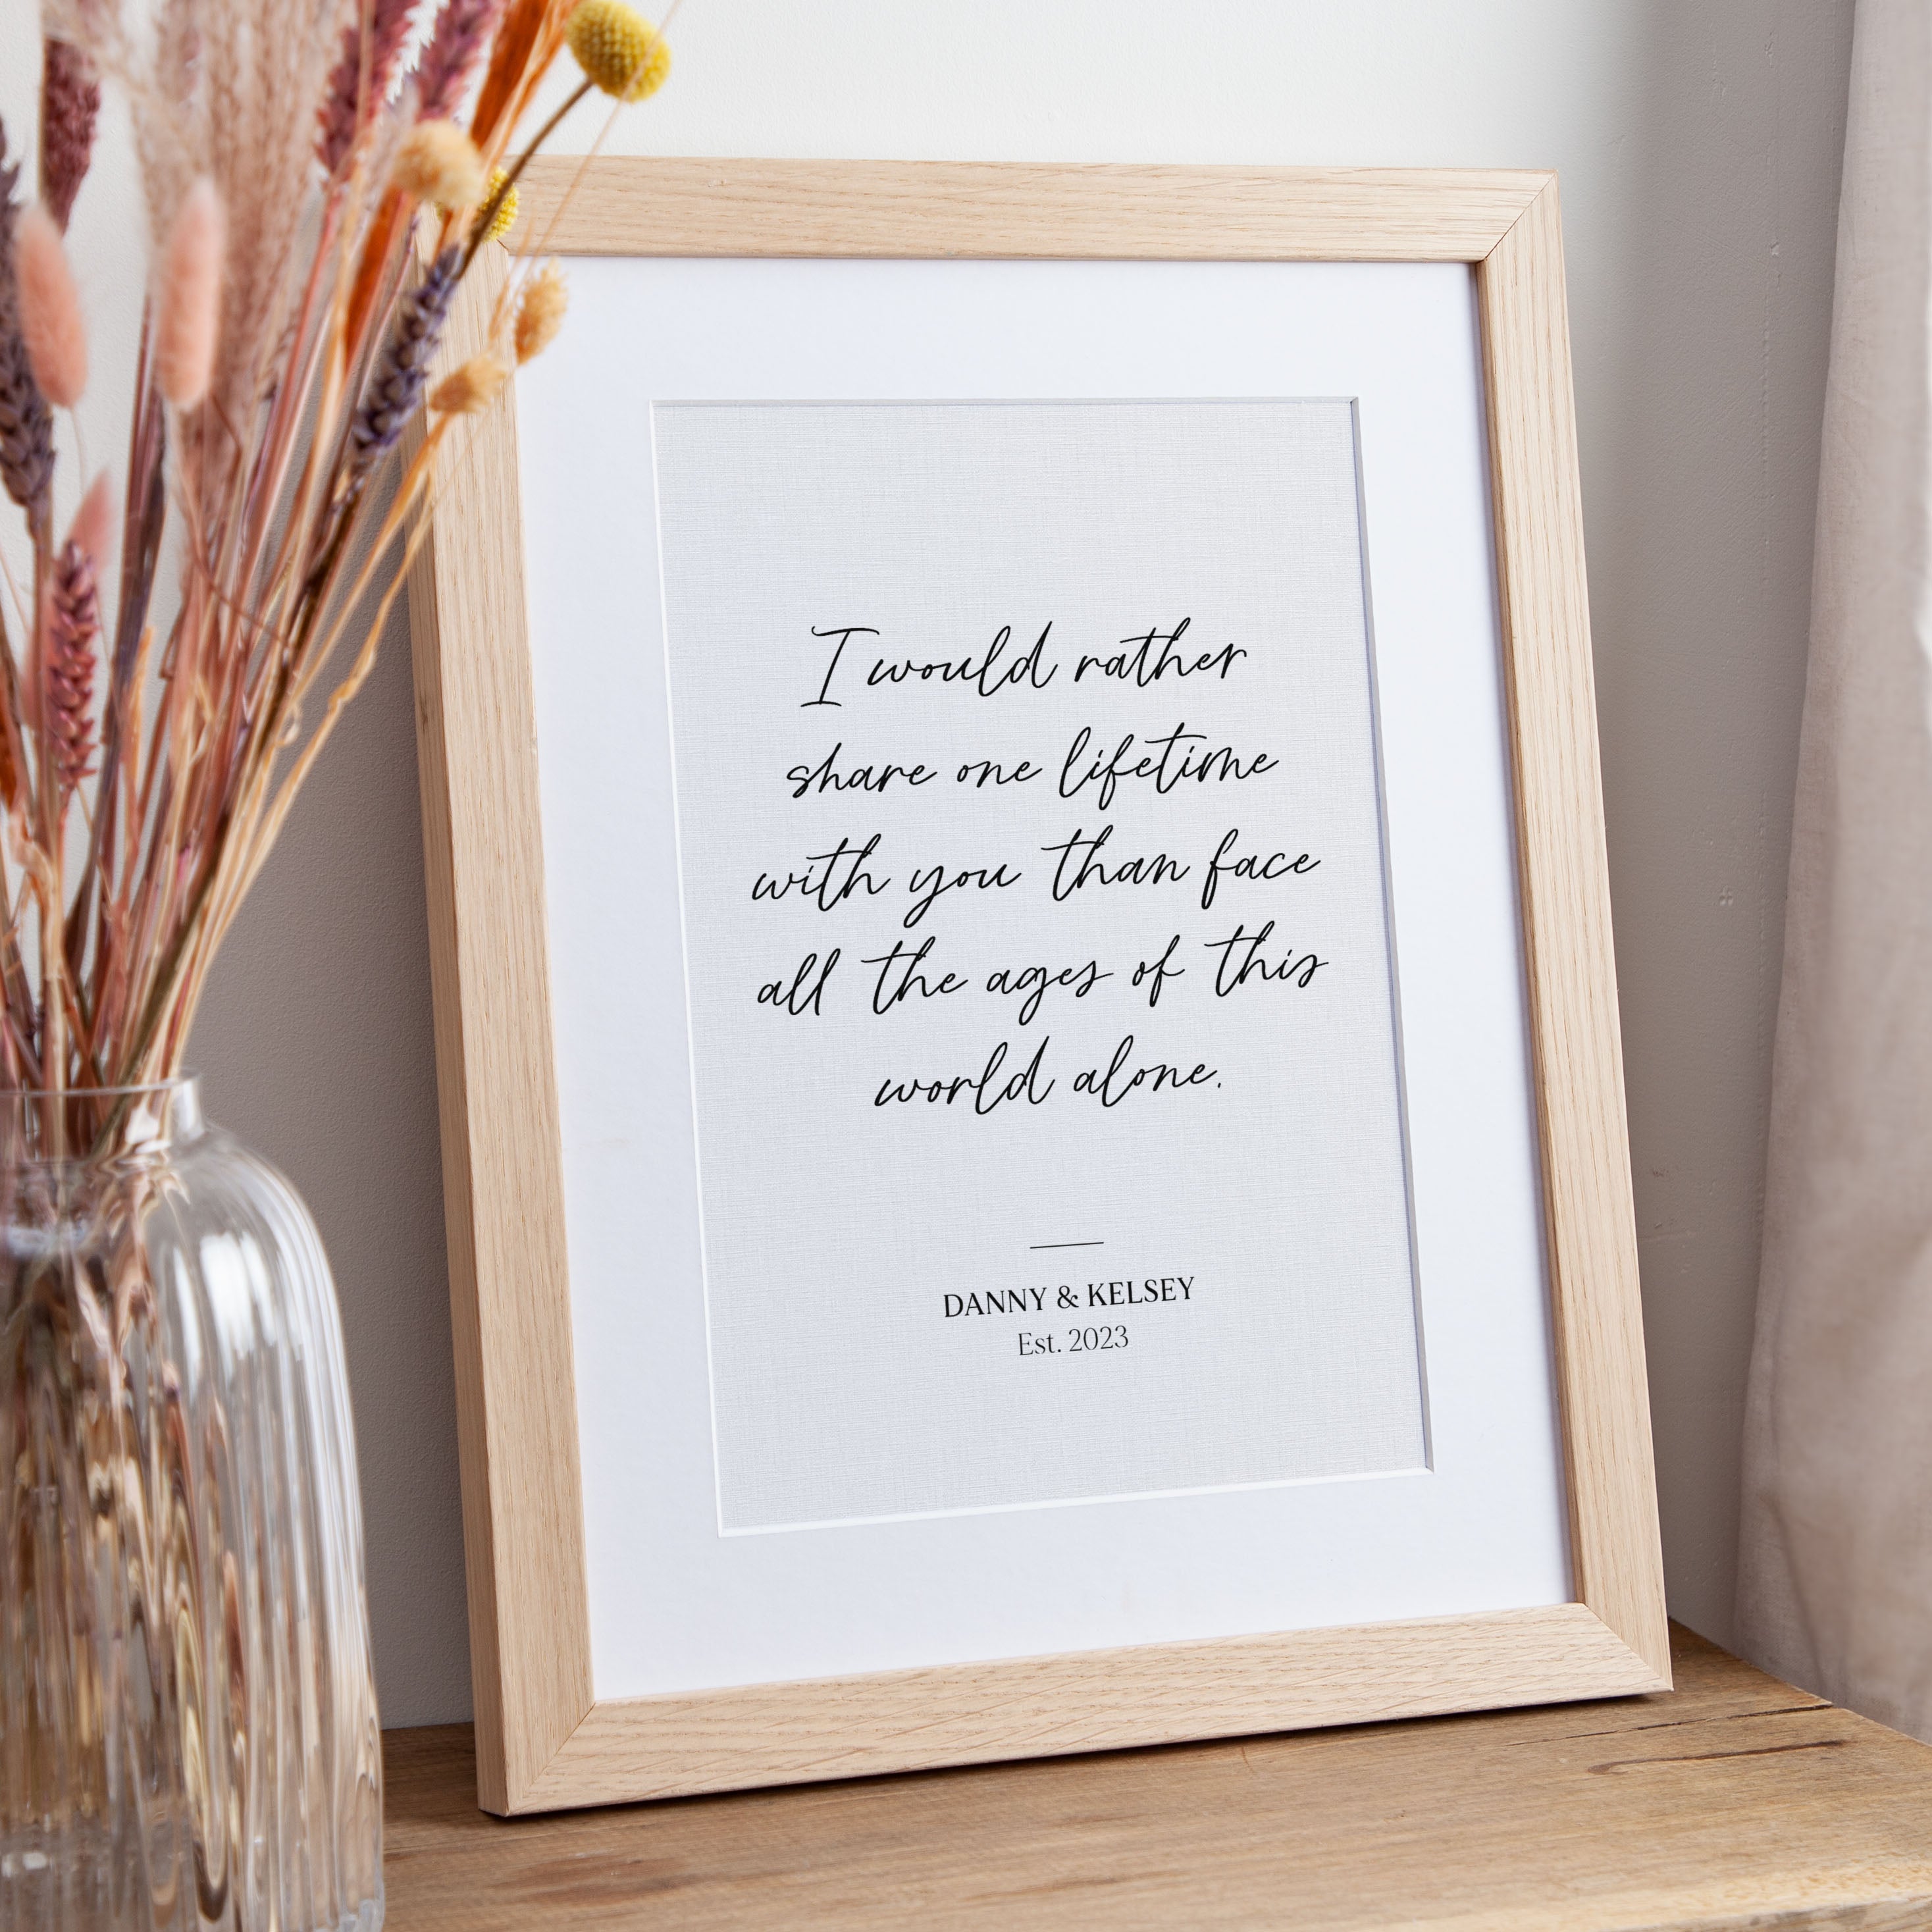 I would rather
share one lifetime
with you than face
all the ages of this
world alone.
DANNY & KELSEY
Est. 2023